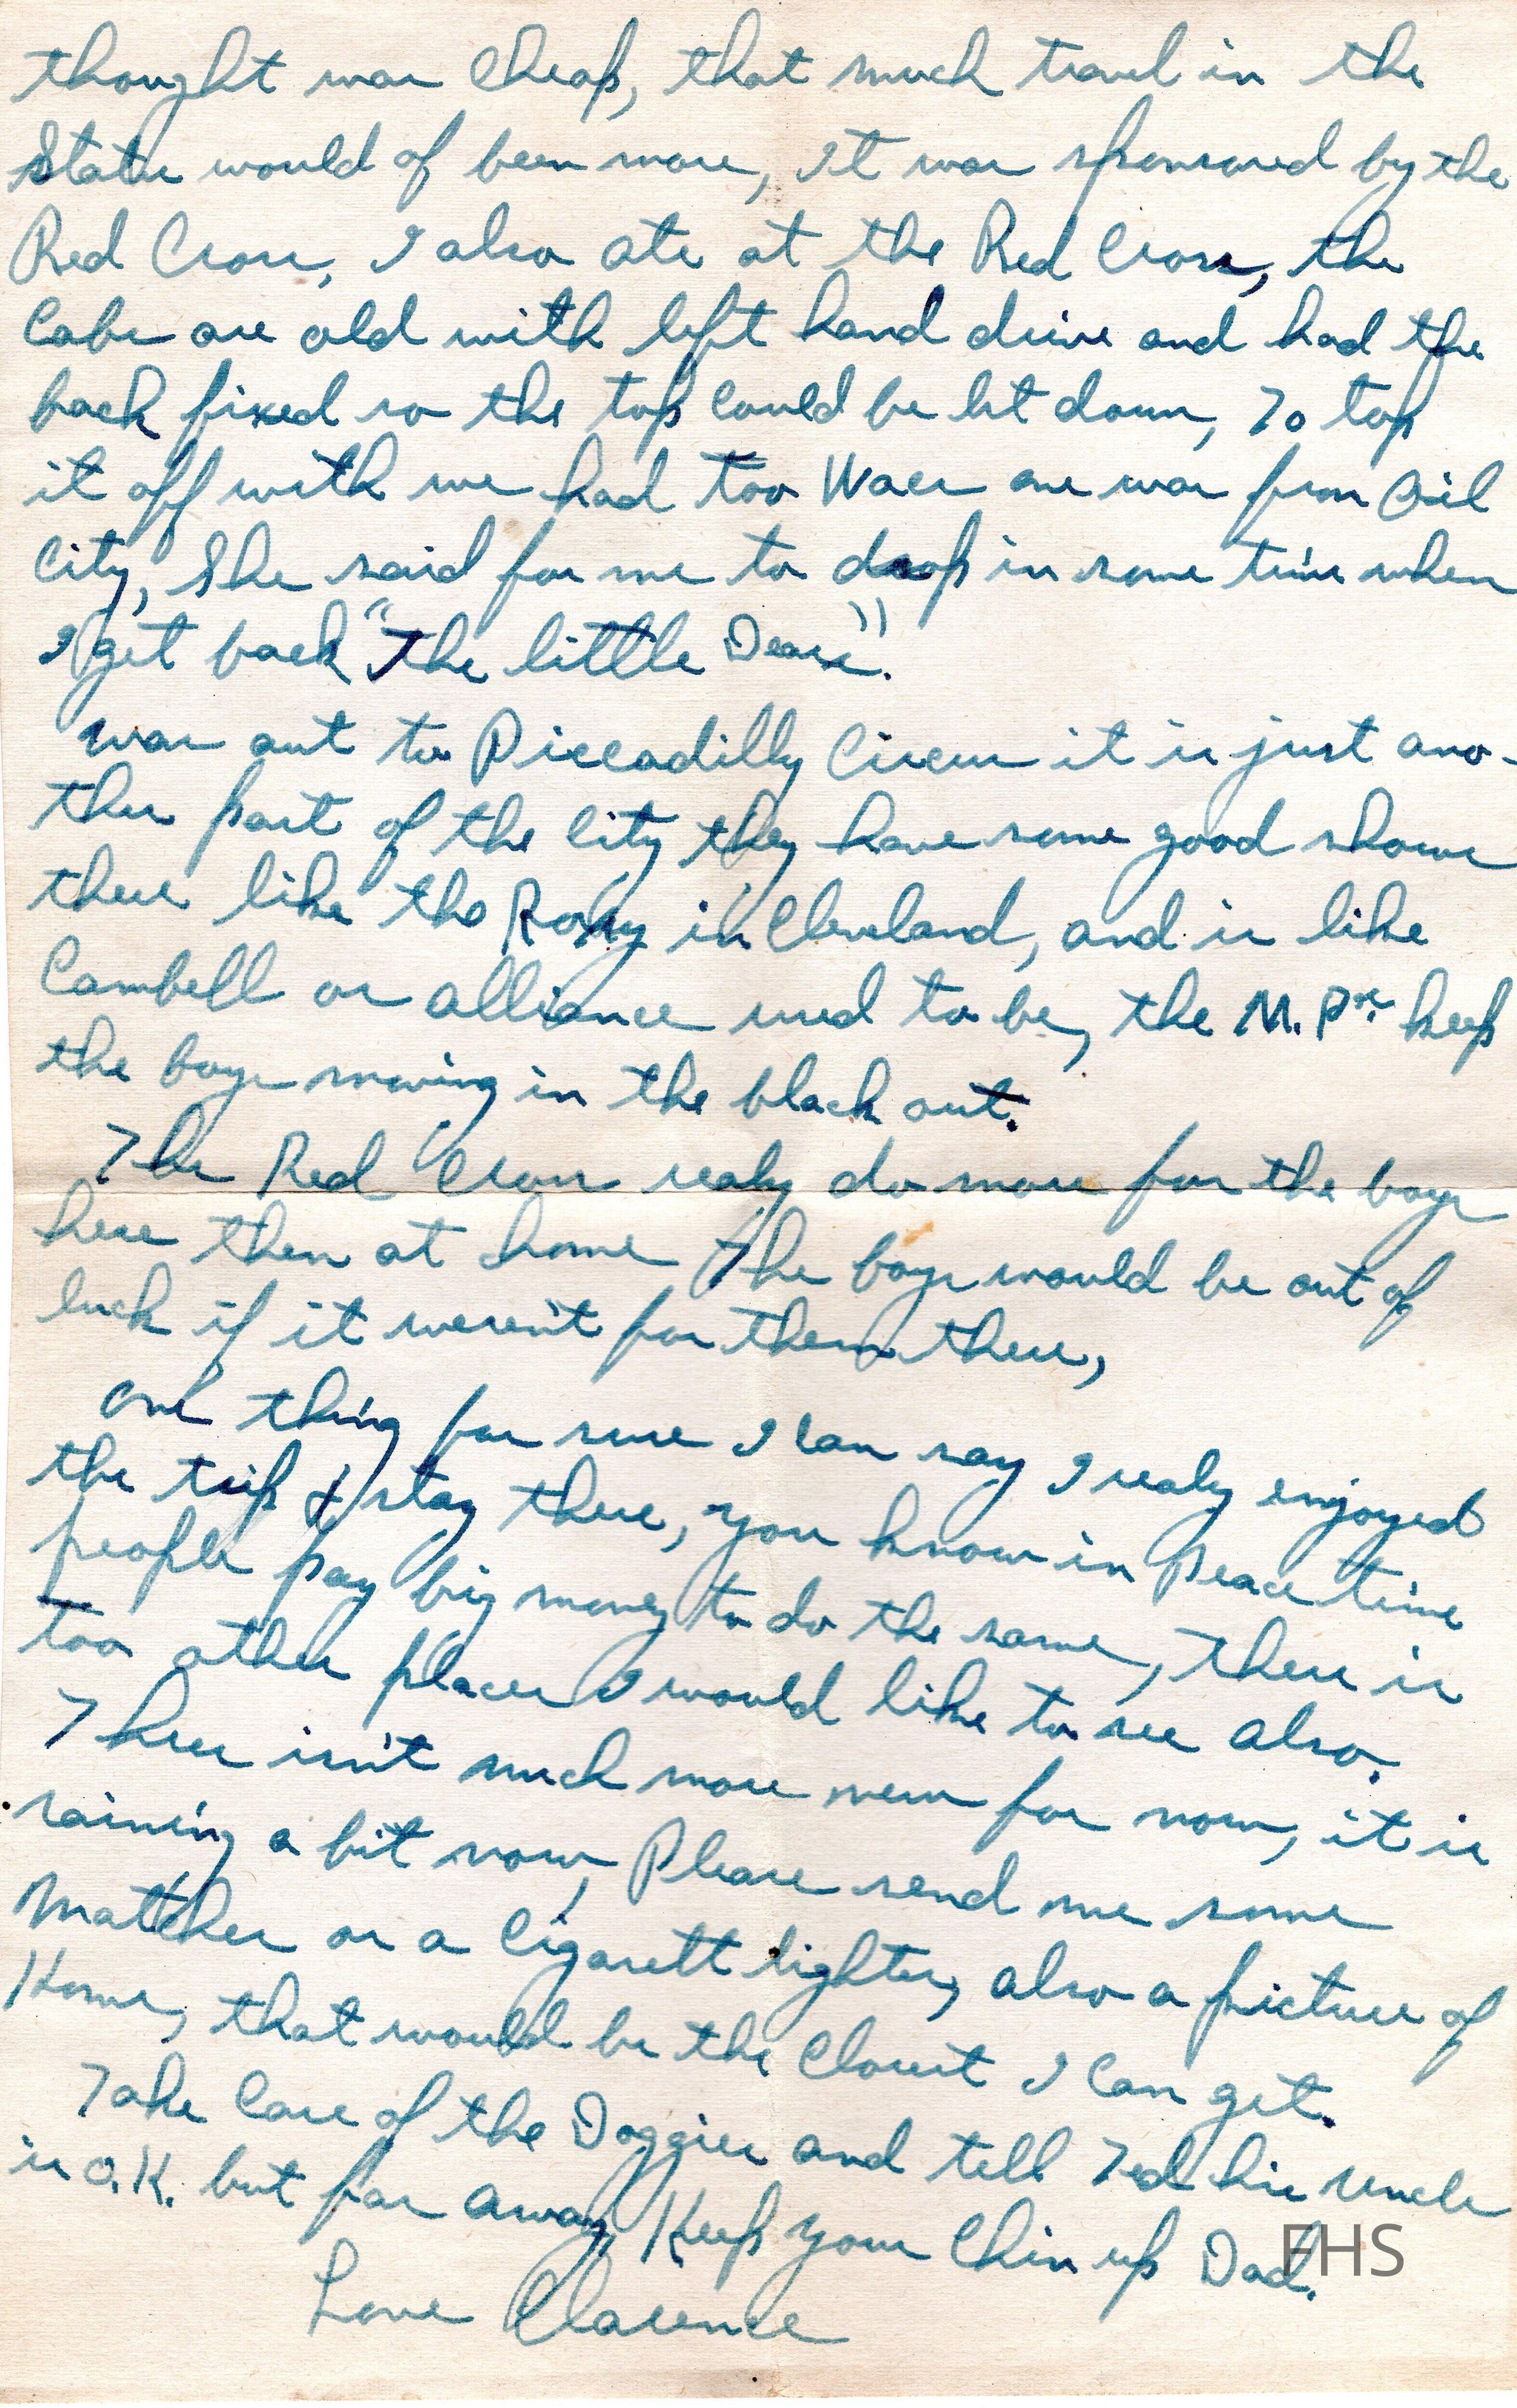 thought was cheap, that much travel in the
States would of been more, it was sponsored by the
Red Cross, I also ate at the Red Cross, the
Cabs are old with left hand drive and had the
back fixed so the top could be let down, To top
it off with we had too Wacs one was from Oil
City, She said for me to drop in some time when
I get back "The little Dears".
was out to Piccadilly Circus it is just ano-
ther part of the City they have some good shows
there like the Roxy in Cleveland, and is like
Cambell or alliance used to be, the M.Ps. keep
the boys moving in the black out.
The Red Cross realy do more for the boys
here then at home The boys would be out of
luck if it weren't for them there,
One thing for sure I can say I realy enjoyed
the trip & stay there, you know in peace time
people pay big money to do the same, There is
too other places I would like to see also.
There isn't much more news for now, it is
raining a bit now, Please send me some
Matches or a Cigarett lighter, also a picture of
Home, that would be the Closest I can get.
Take Care of the Doggies and tell Ted his uncle
is O.K. but far away, Keep your Chin up Dad.
Love Clarence
FHS